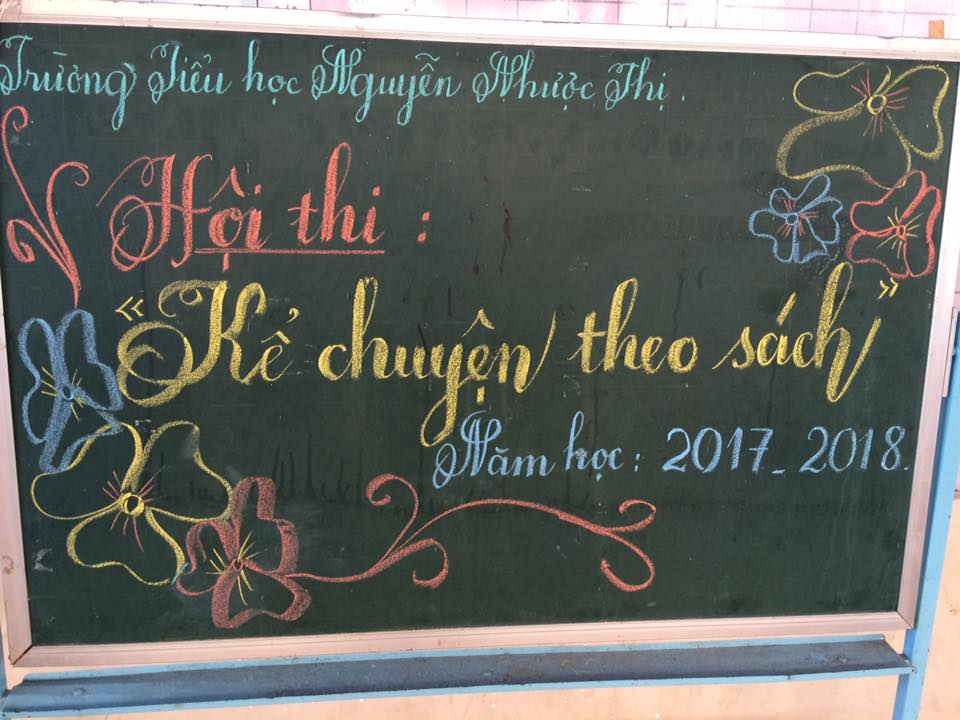 Trường Tiểu học Nguyễn Nhược Thị.
Hội thi :
“Kể chuyện theo sách”
Năm học : 2017 - 2018.